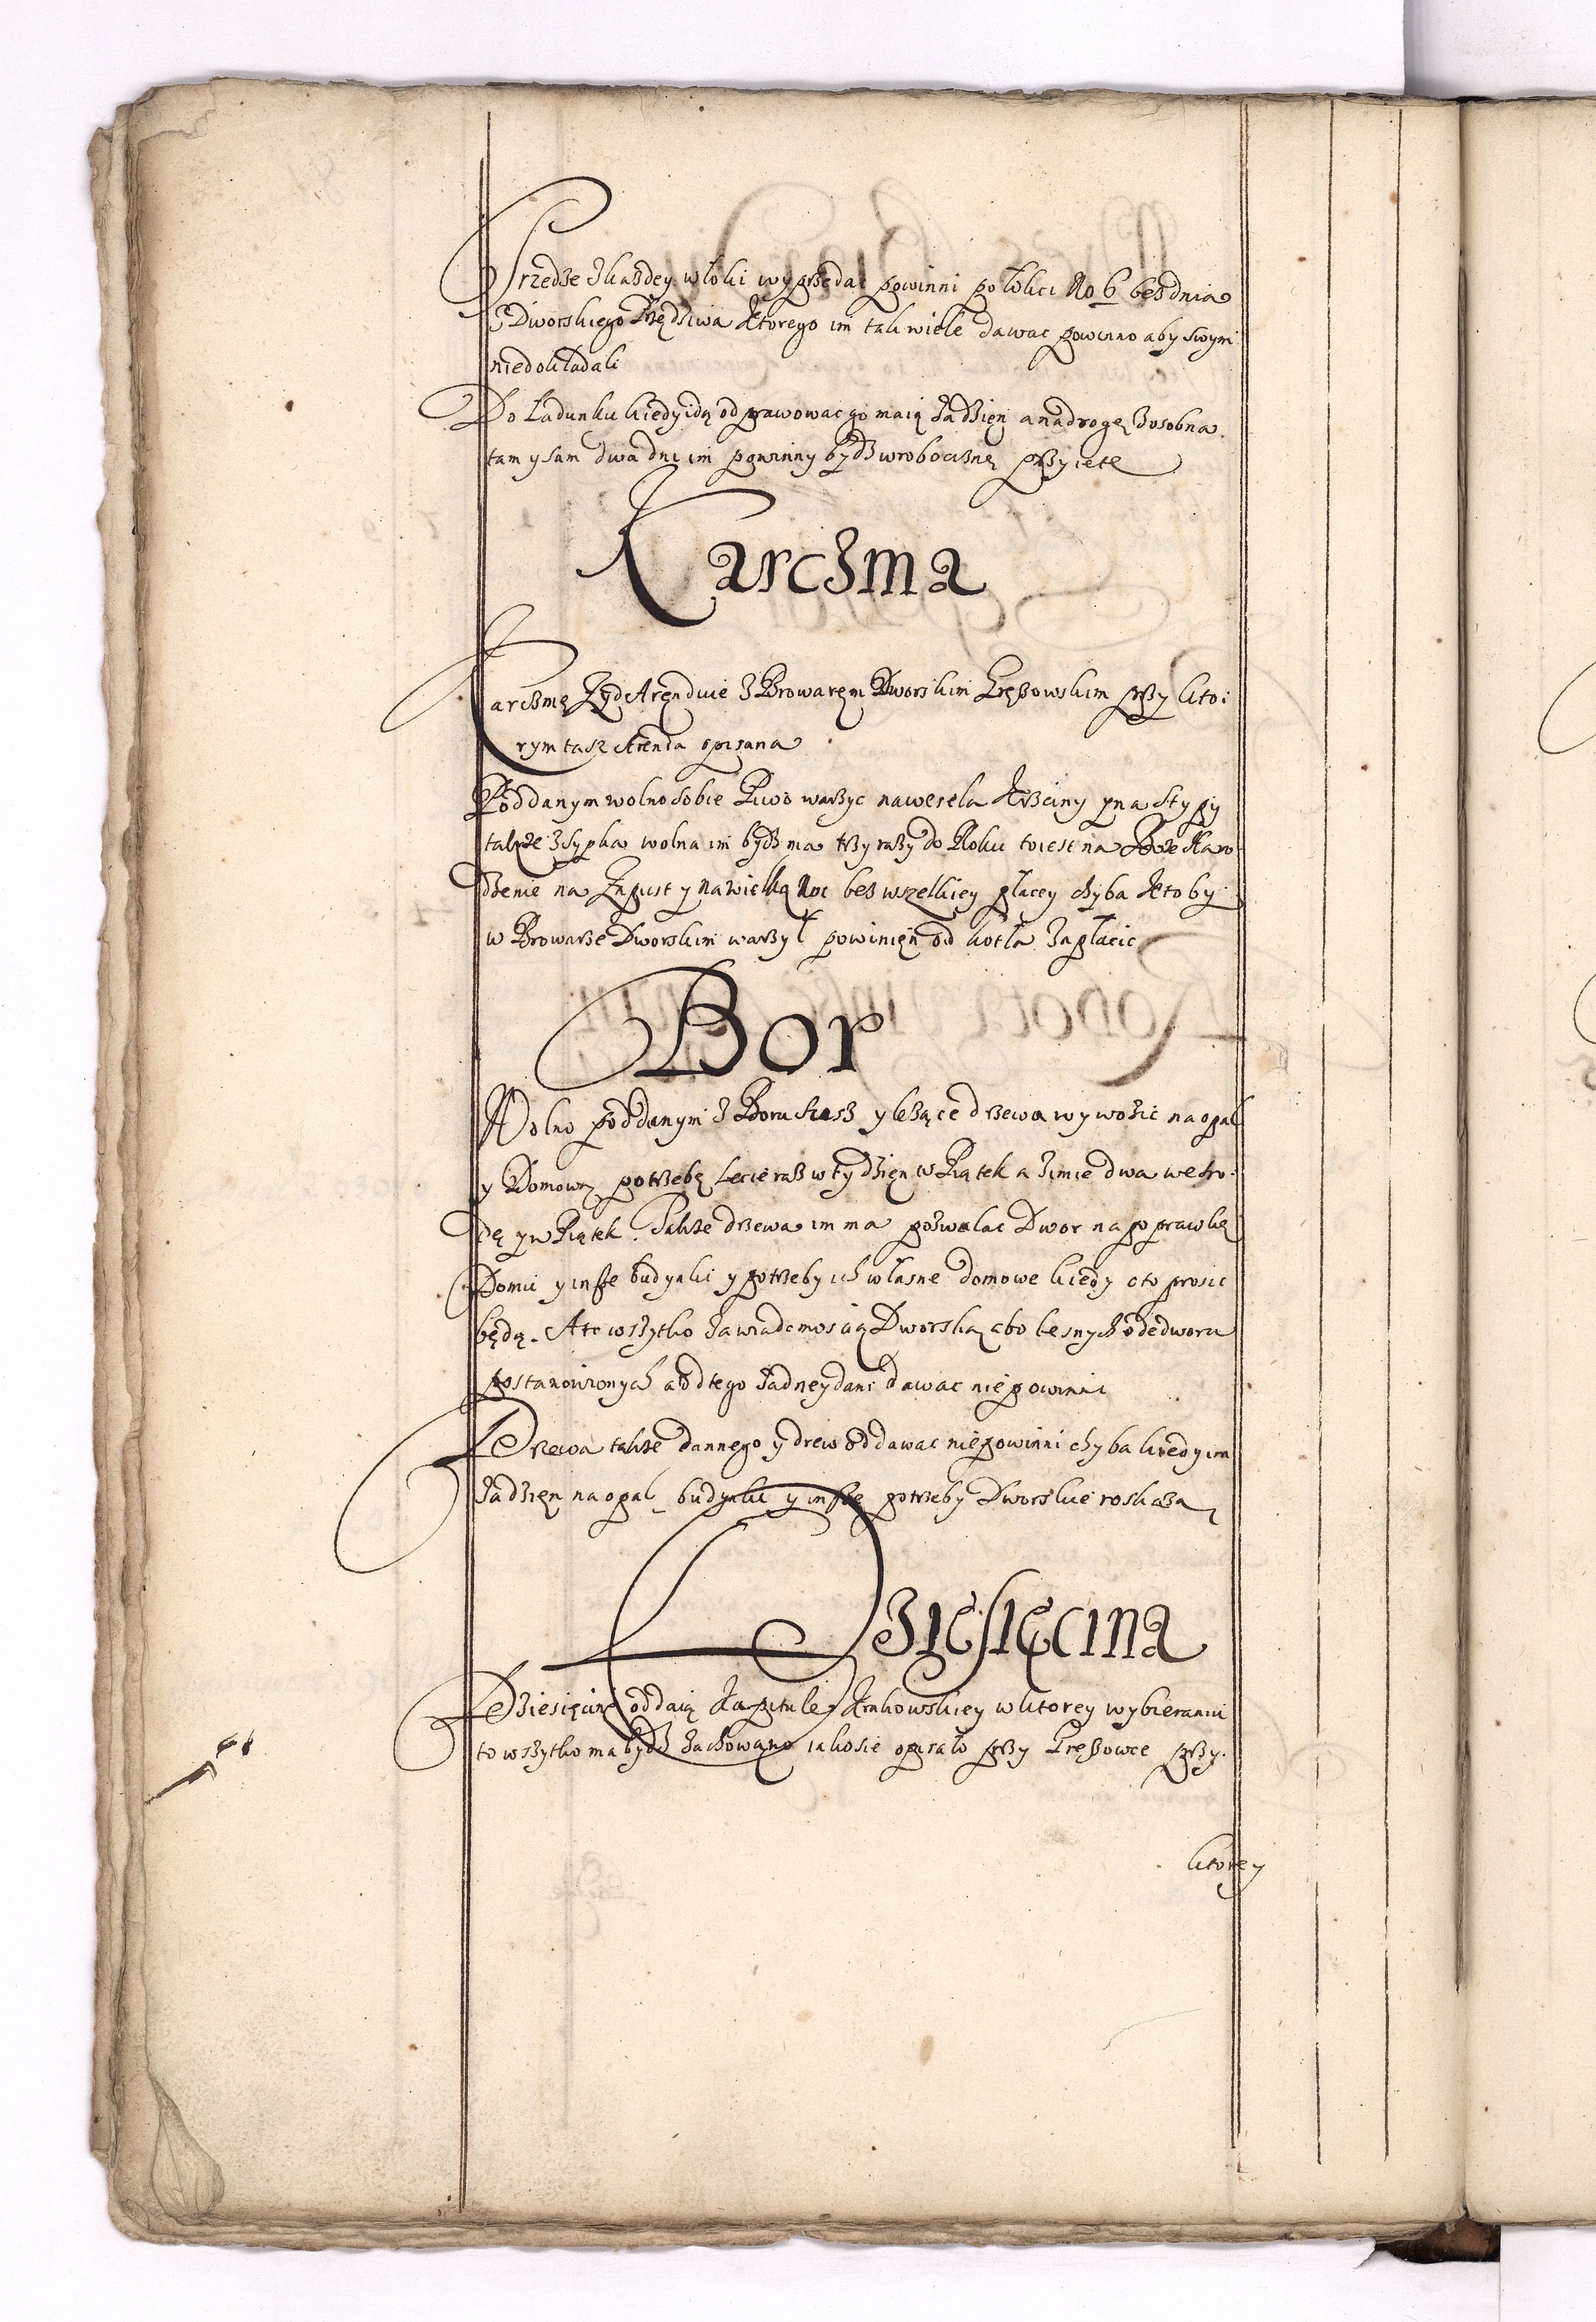 Przedze zkazdey włoki wyprzędac powinni po łokci No 6 bez dnia
z Dworskiego Przędziwa ktorego im tak wiele dawac powinno aby swym
niedokładali
Do Ładunku kiedy idą odprawowac go maią za dzien a na drogę zosobna
tam y sam dwa dni im powinny bydz w roboczznę przyięte
Karczma
Karczmę Zyd Arenduie z Browarem Dworskim Kręzowskim przy kto:
rym tasz Arenda opisana
Poddanym wolno sobie Piwo warzyc na wesela Krzciny y na Stypy
takze zsypka wolna im bydz ma trzy razy do Roku to iest na Boze Naro
dzenie na Zapust y na wielką Noc bez wszelkiey płacey chyba ktoby
w Browarze Dworskim warzył powinien od kotła zapłacic
Bor
Wolno poddanym z Boru susz y lezące drzewa wywozic na opał
y Domową potrzebę Lecie raz w tydzien w Piątek a zimie dwa we sro:
dę y w Piątek. Takze drzewa im ma pozwalac Dwor na poprawkę
Domu y insze budynki y potrzeby ich własne domowe kiedy o to prosic
będą. A to wszytko za wiadomoscią Dworską abo lesnych ode dworu
postanowionych a od tego zadney dani dawac nie powinni
Drzewa takze dannego y drew oddawac nie powinni chyba kiedy im
za dzien na opał budynki y insze potrzeby Dworskie roskaza
Dziesięcina
Dziesięcinę oddaią Kapitule Krakowskiey w ktorey wybieraniu
to wszytko ma bydz zachowano iako sie opisało przy Kręzowce przy:
ktorey